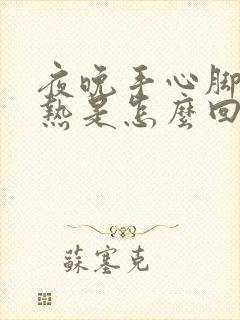 夜晚手心腳
熱是怎麼回
蘇塞克